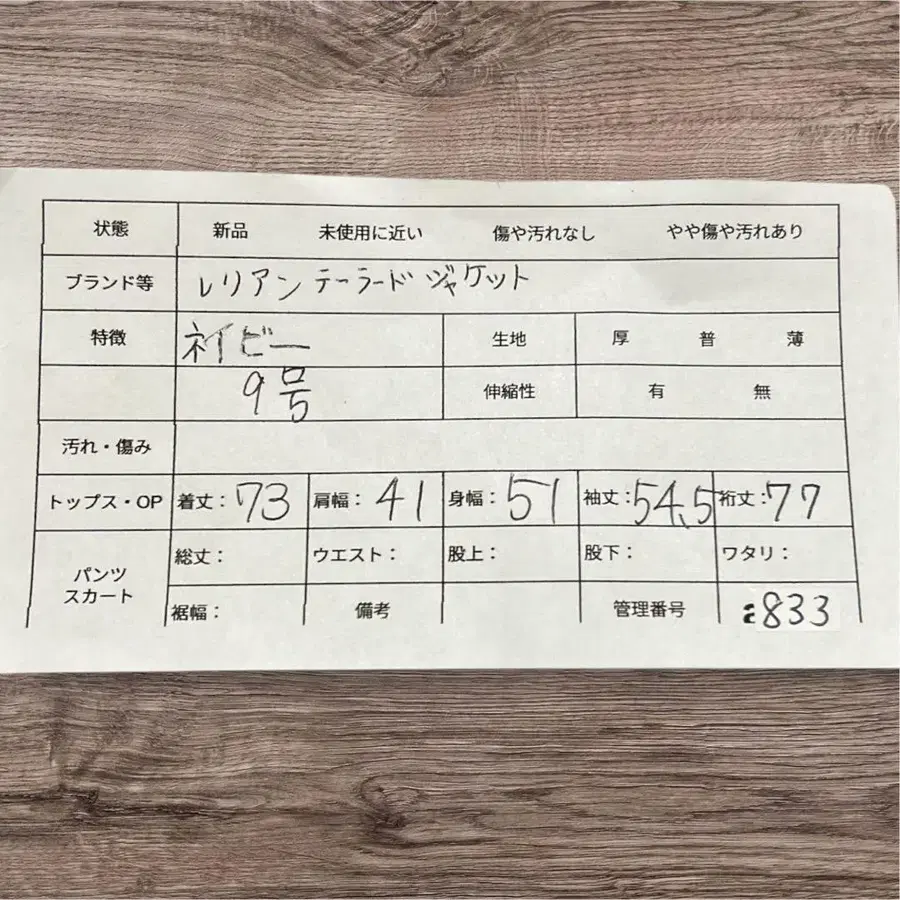 状態 新品 未使用に近い 傷や汚れなし やや傷や汚れあり
ブランド等 レリアン テーラード ジャケット
特徴 ネイビー 生地 厚 普 薄
9号 伸縮性 有 無
汚れ・傷み
トップス・OP 着丈：73 肩幅：41 身幅：51 袖丈：54.5 裄丈：77
パンツ スカート 総丈： ウエスト： 股上： 股下： ワタリ：
裾幅： 備考 管理番号 833